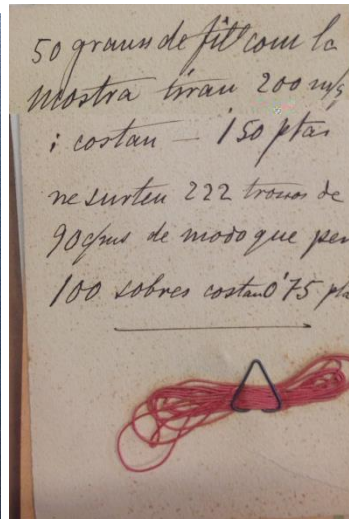 50 grams de fil com la
mostra tiran 200 m/s
i costan — 1'50 ptas
ne surten 222 trossos de
90 c/ms de modo que per
100 sobres costan 0'75 pta